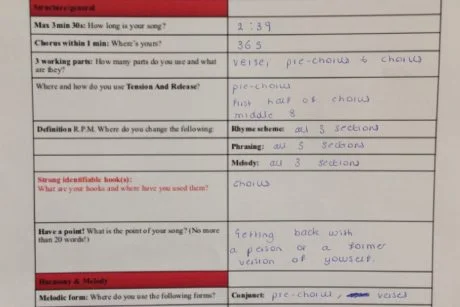 Structure/general
Max 3min 30s: How long is your song? 2:39
Chorus within 1 min: Where's yours? 36s
3 working parts: How many parts do you use and what are they? verse, pre-chorus & chorus
Where and how do you use Tension And Release?
pre-chorus
First half of chorus
middle 8
Definition R.P.M. Where do you change the following: Rhyme scheme: all 3 sections
Phrasing: all 3 sections
Melody: all 3 sections
Strong identifiable hook(s):
What are your hooks and where have you used them?
chorus
Have a point! What is the point of your song? (No more than 20 words!)
Getting back with
a person or a former
version of yourself.
Harmony & Melody
Melodic form: Where do you use the following forms? Conjunct: pre-chorus, verses